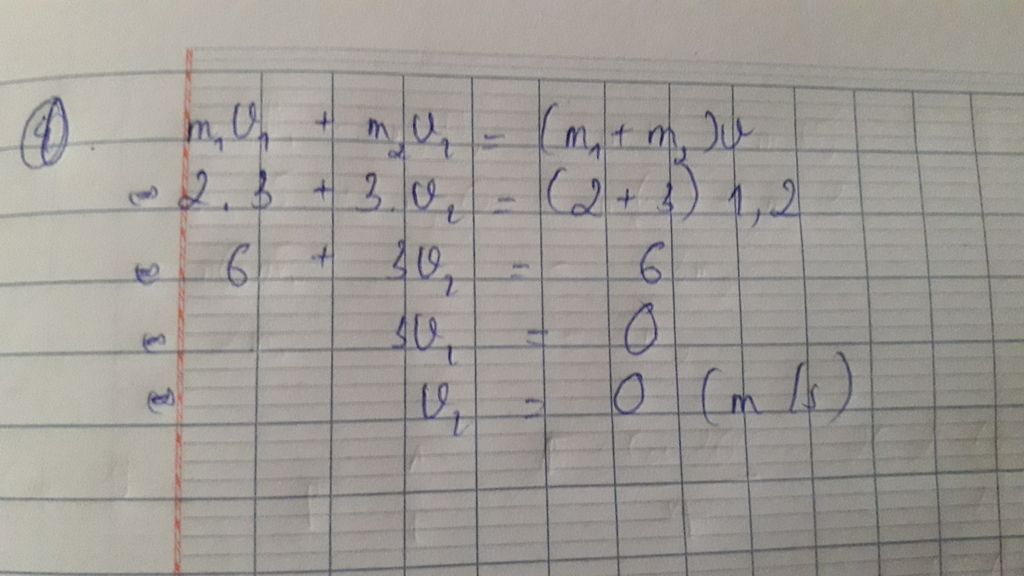 ④. m₁v₁ + m₂v₂ = (m₁ + m₂)v
⇔ 2.3 + 3.v₂ = (2 + 3) 1,2
⇔ 6 + 3v₂ = 6
⇔ 3v₂ = 0
⇔ v₂ = 0 (m/s)